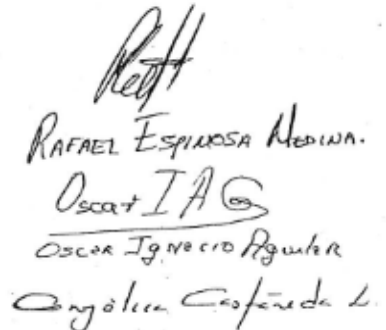 RAFAEL ESPINOSA MEDINA.
Oscar I A G
OSCAR IGNACIO Aguilar
Angélica Castañeda L.